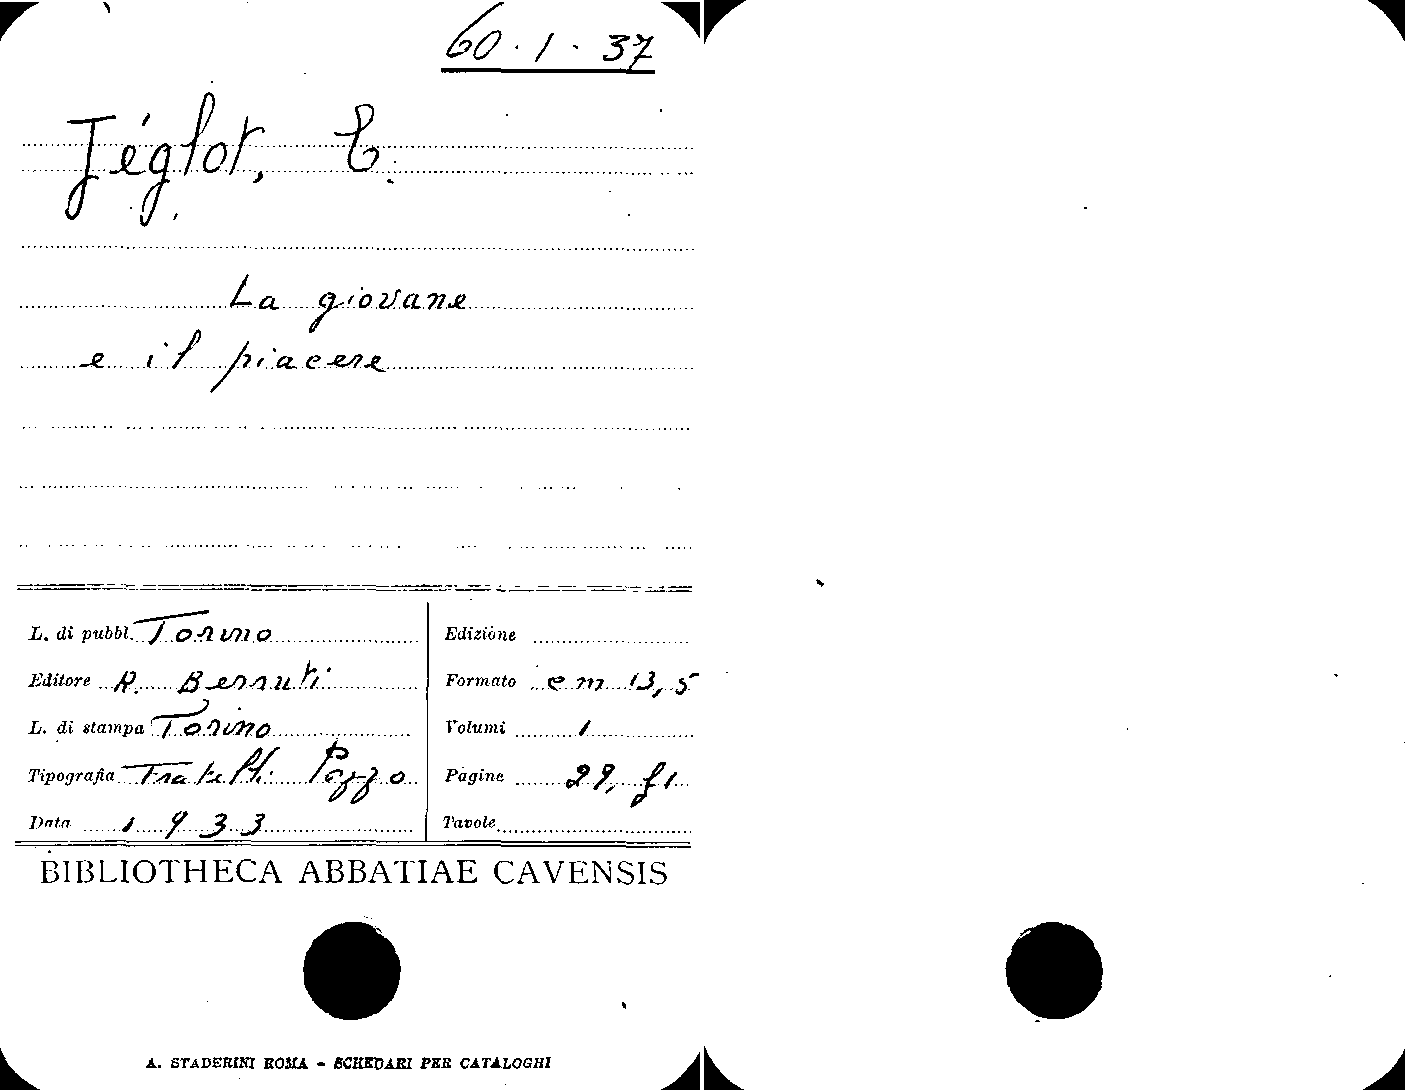 60.1.37
Jéglot, C.
La giovane
e il piacere
L. di pubbl. Torino
Editore R. Berruti
L. di stampa Torino
Tipografia Fratelli Pozzo
Data 1933
Edizione
Formato cm 13,5
Volumi 1
Pagine 29, f1
Tavole
BIBLIOTHECA ABBATIAE CAVENSIS
A. STADERINI ROMA - SCHEDARI PER CATALOGHI